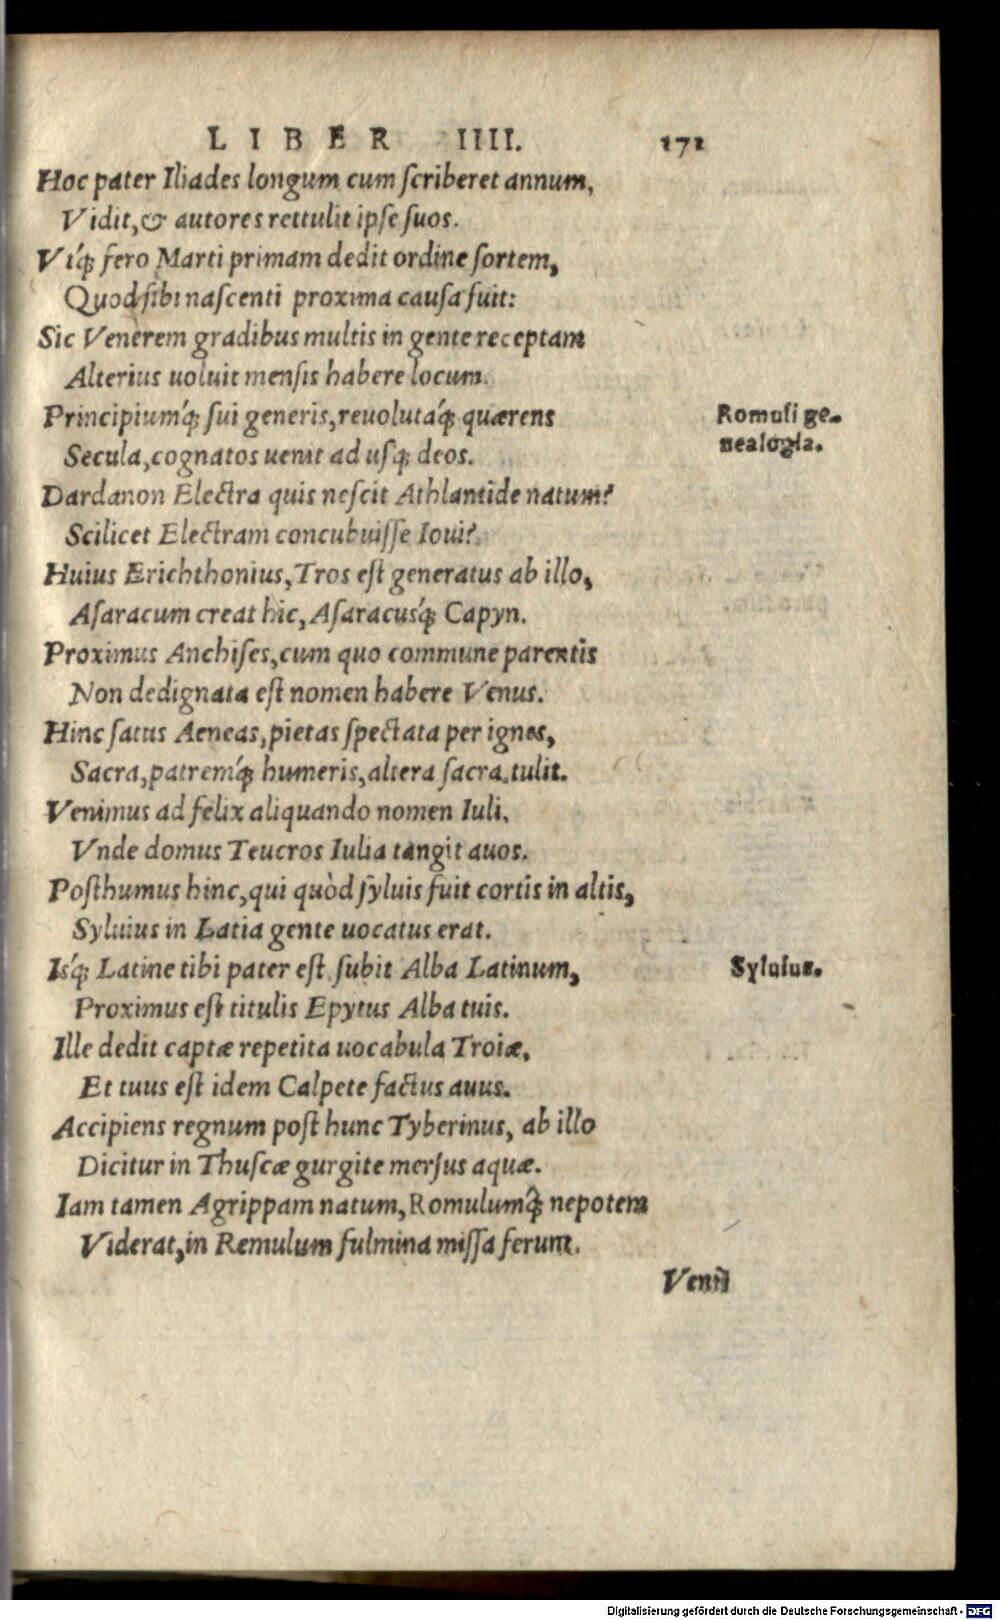 LIBER IIII. 171
Hoc pater Iliades longum cum ſcriberet annum,
Vidit, & autores rettulit ipſe ſuos.
Vtq́; fero Marti primam dedit ordine ſortem,
Quod ſibi naſcenti proxima cauſa fuit:
Sic Venerem gradibus multis in gente receptam
Alterius uoluit menſis habere locum.
Principiumq́; ſui generis, reuolutaq́; quærens
Secula, cognatos uenit ad uſq; deos.
Dardanon Electra quis neſcit Athlantide natum?
Scilicet Electram concubuiſſe Ioui?
Huius Erichthonius, Tros eſt generatus ab illo,
Aſaracum creat hic, Aſaracusq́; Capyn.
Proximus Anchiſes, cum quo commune parentis
Non dedignata eſt nomen habere Venus.
Hinc ſatus Aeneas, pietas ſpectata per ignes,
Sacra, patremq́; humeris, altera ſacra, tulit.
Venimus ad felix aliquando nomen Iuli,
Vnde domus Teucros Iulia tangit auos.
Poſthumus hinc, qui quòd ſyluis fuit cortis in altis,
Syluius in Latia gente uocatus erat.
Isq́; Latine tibi pater eſt, ſubit Alba Latinum,
Proximus eſt titulis Epytus Alba tuis.
Ille dedit captæ repetita uocabula Troiæ,
Et tuus eſt idem Calpete factus auus.
Accipiens regnum poſt hunc Tyberinus, ab illo
Dicitur in Thuſcæ gurgite merſus aquæ.
Iam tamen Agrippam natum, Romulumq̃; nepotem
Viderat, in Remulum fulmina miſſa ferunt.
Venit
Romuli ge-
nealogia.
Syluius.
Digitalisierung gefördert durch die Deutsche Forschungsgemeinschaft - DFG